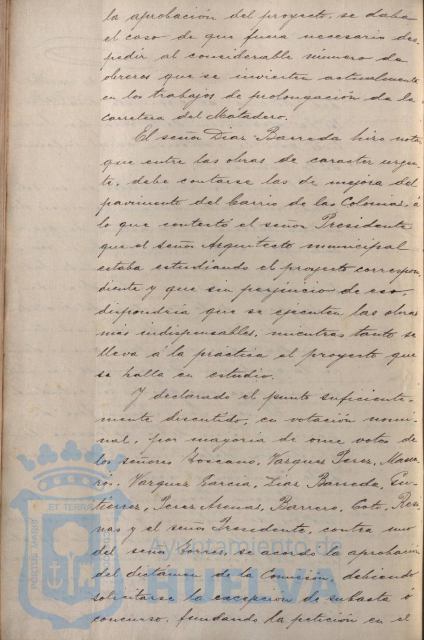 la aprobación del proyecto, se daba
el caso de que fuera necesario des-
pedir al considerable número de
obreros que se invierten actualmente
en los trabajos de prolongación de la
carretera del Matadero.
El señor Diaz Barreda hizo notar
que entre las obras de caracter urgen-
te, debe contarse las de mejora del
pavimento del barrio de las Colonias; á
lo que contestó el señor Presidente
que el señor Arquitecto municipal
estaba estudiando el proyecto correspon-
diente y que sin perjuicio de eso,
dispondria que se ejecuten las obras
más indispensables, mientras tanto se
lleva á la práctica el proyecto que
se halla en estudio.
Y declarado el punto suficiente-
mente discutido, en votación nomi-
nal, por mayoria de once votos de
los señores Toscano, Vazquez Perez,
Vazquez Garcia, Diaz Barreda, Gu-
tierrez, Perez Arenas, Barrero, Coto,
y el señor Presidente contra uno
del señor Torres, se acordó la aprobación
del dictamen de la Comisión, debiendo
solicitarse la excepción de subasta ó
concurso, fundando la petición en el
Ayuntamiento de
HUELVA
PORTUS MARIS
ET TERRAE